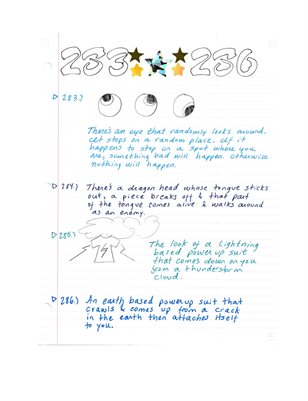 283 286
283.)
There's an eye that randomly looks around.
It stops on a random place. If it
happens to stop on a spot where you
are, something bad will happen. Otherwise
nothing will happen.
284.) There's a dragon head whose tongue sticks
out, a piece breaks off & that part
of the tongue comes alive & walks around
as an enemy.
285.)
The look of a lightning
based power up suit
that comes down on you
from a thunderstorm
cloud.
286.) An earth based power up suit that
crawls & comes up from a crack
in the earth then attaches itself
to you.